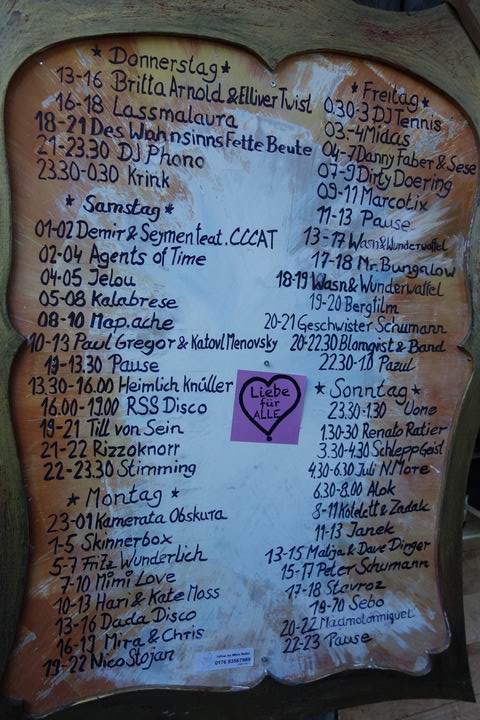 * Donnerstag *
13-16 Britta Arnold & Elliver Twist
16-18 Lassmalaura
18-21 Des Wahnsinns Fette Beute
21-23.30 DJ Phono
23.30-0.30 Krink
* Freitag *
0.30-3 DJ Tennis
03-4 Midas
04-7 Danny Faber & Sese
07-9 Dirty Doering
09-11 Marcotix
11-13 Pause
13-17 Wasn & Wunderwaffel
17-18 Mr. Bungalow
18-19 Wasn & Wunderwaffel
19-20 Bergfilm
20-21 Geschwister Schumann
20-22.30 Blomqist & Band
22.30-1.0 Pazul
* Samstag *
01-02 Demir & Seymen feat. CCCAT
02-04 Agents of Time
04-05 Jelou
05-08 Kalabrese
08-10 Map.ache
10-13 Paul Gregor & Katovl Menovsky
13-13.30 Pause
13.30-16.00 Heimlich knüller
16.00-19.00 RSS Disco
19-21 Till von Sein
21-22 Rizzoknorr
22-23.30 Stimming
Liebe
für
ALLE
* Sonntag *
23.30-1.30 Uone
1.30-3.30 Renato Ratier
3.30-4.30 SchleppGeist
4.30-6.30 Juli N. More
6.30-8.00 Alok
8-11 Kotelett & Zadak
11-13 Janek
13-15 Matija & Dave Dinger
15-17 Peter Schumann
17-18 Stavroz
19-20 Sebo
20-22
22-23 Pause
* Montag *
23-01 Kamerata Obskura
1-5 Skinnerbox
5-7 Fritz Wunderlich
7-10 Mimi Love
10-13 Hari & Kate Moss
13-16 Dada Disco
16-19 Mira & Chris
19-22 Nico Stojan
0176 83567989